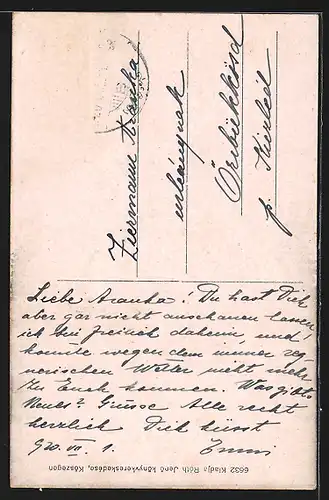 Ziermann Aranka
urleánynak
Őribükkösd
p. Körled
Liebe Aranka! Du hast Dich
aber gar nicht anschauen lassen,
ich bin freilich daheim, und
konnte wegen dem immer reg-
nerischen Wetter nicht mehr
zu Euch kommen. Was gibts
Neues? Grüsse Alle recht
herzlich Dich küsst
920. VII. 1. Emmi
6632 Kiadja Róth Jenő könyvkereskedése, Kőszegen